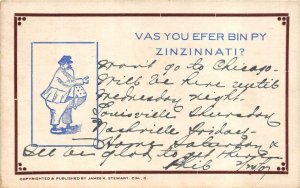 VAS YOU EFER BIN PY
ZINZINNATI?
Won't go to Chicago-
Will be here until
Wednesday night-
Louisville Thursday
Nashville Friday-
Home Saturday &
I'll be glad to get there
Phil
COPYRIGHTED & PUBLISHED BY JAMES R. STEWART, CIN., O.